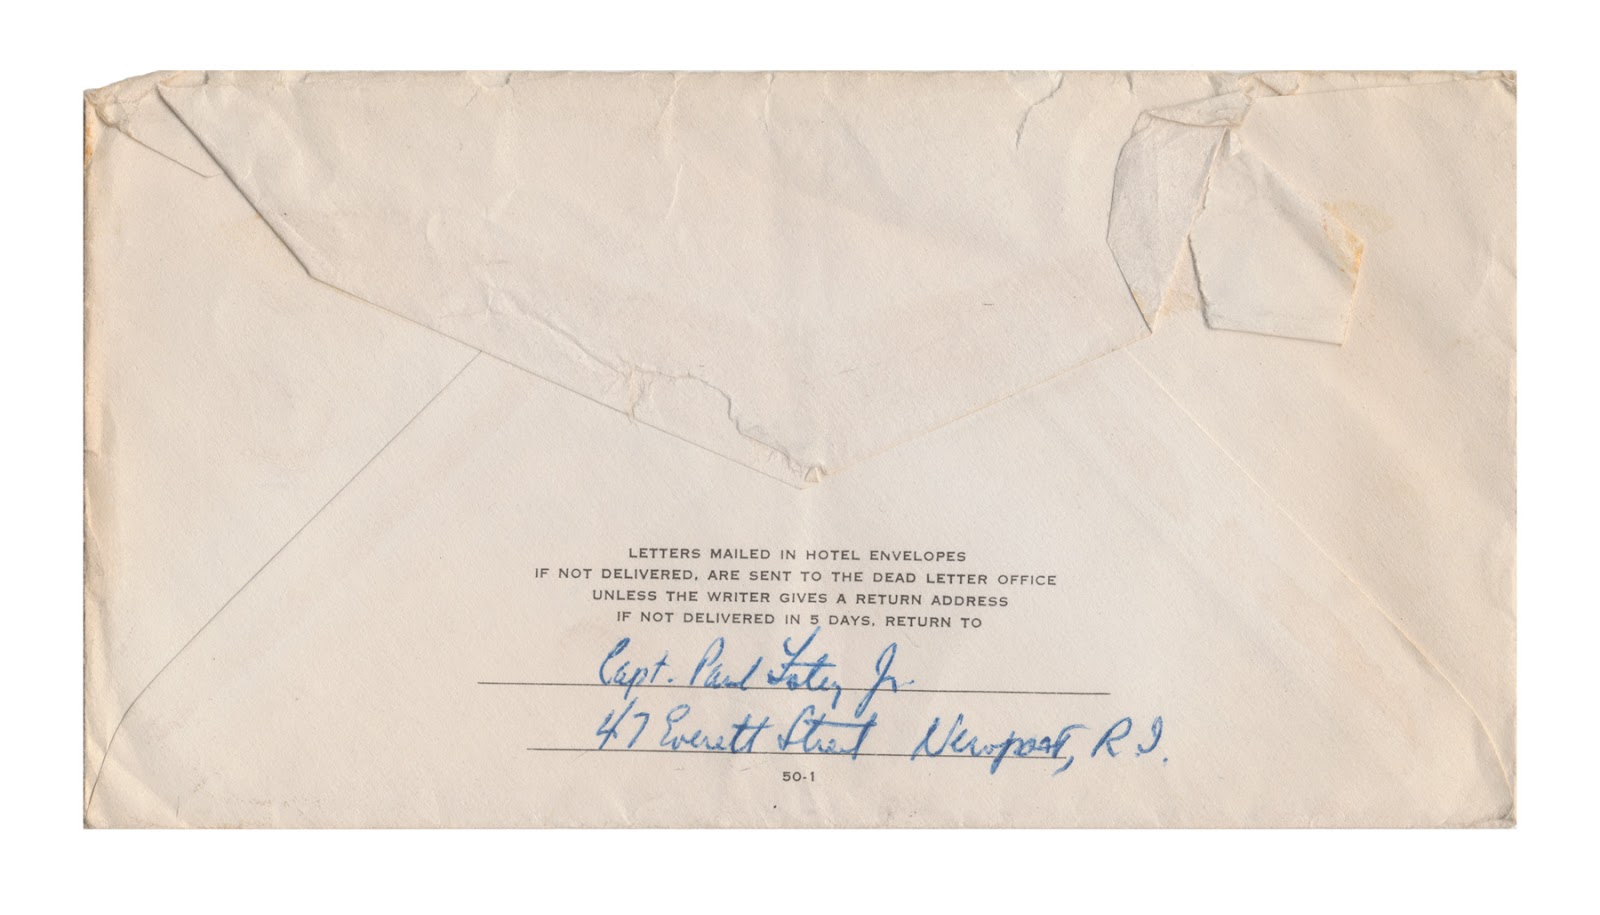 LETTERS MAILED IN HOTEL ENVELOPES
IF NOT DELIVERED, ARE SENT TO THE DEAD LETTER OFFICE
UNLESS THE WRITER GIVES A RETURN ADDRESS
IF NOT DELIVERED IN 5 DAYS, RETURN TO
Capt. Paul Foley Jr.
47 Everett Street Newport, R.I.
50-1